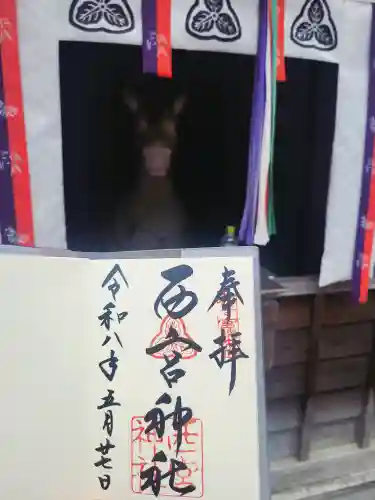 奉拝
西宮神社
令和八年五月廿七日